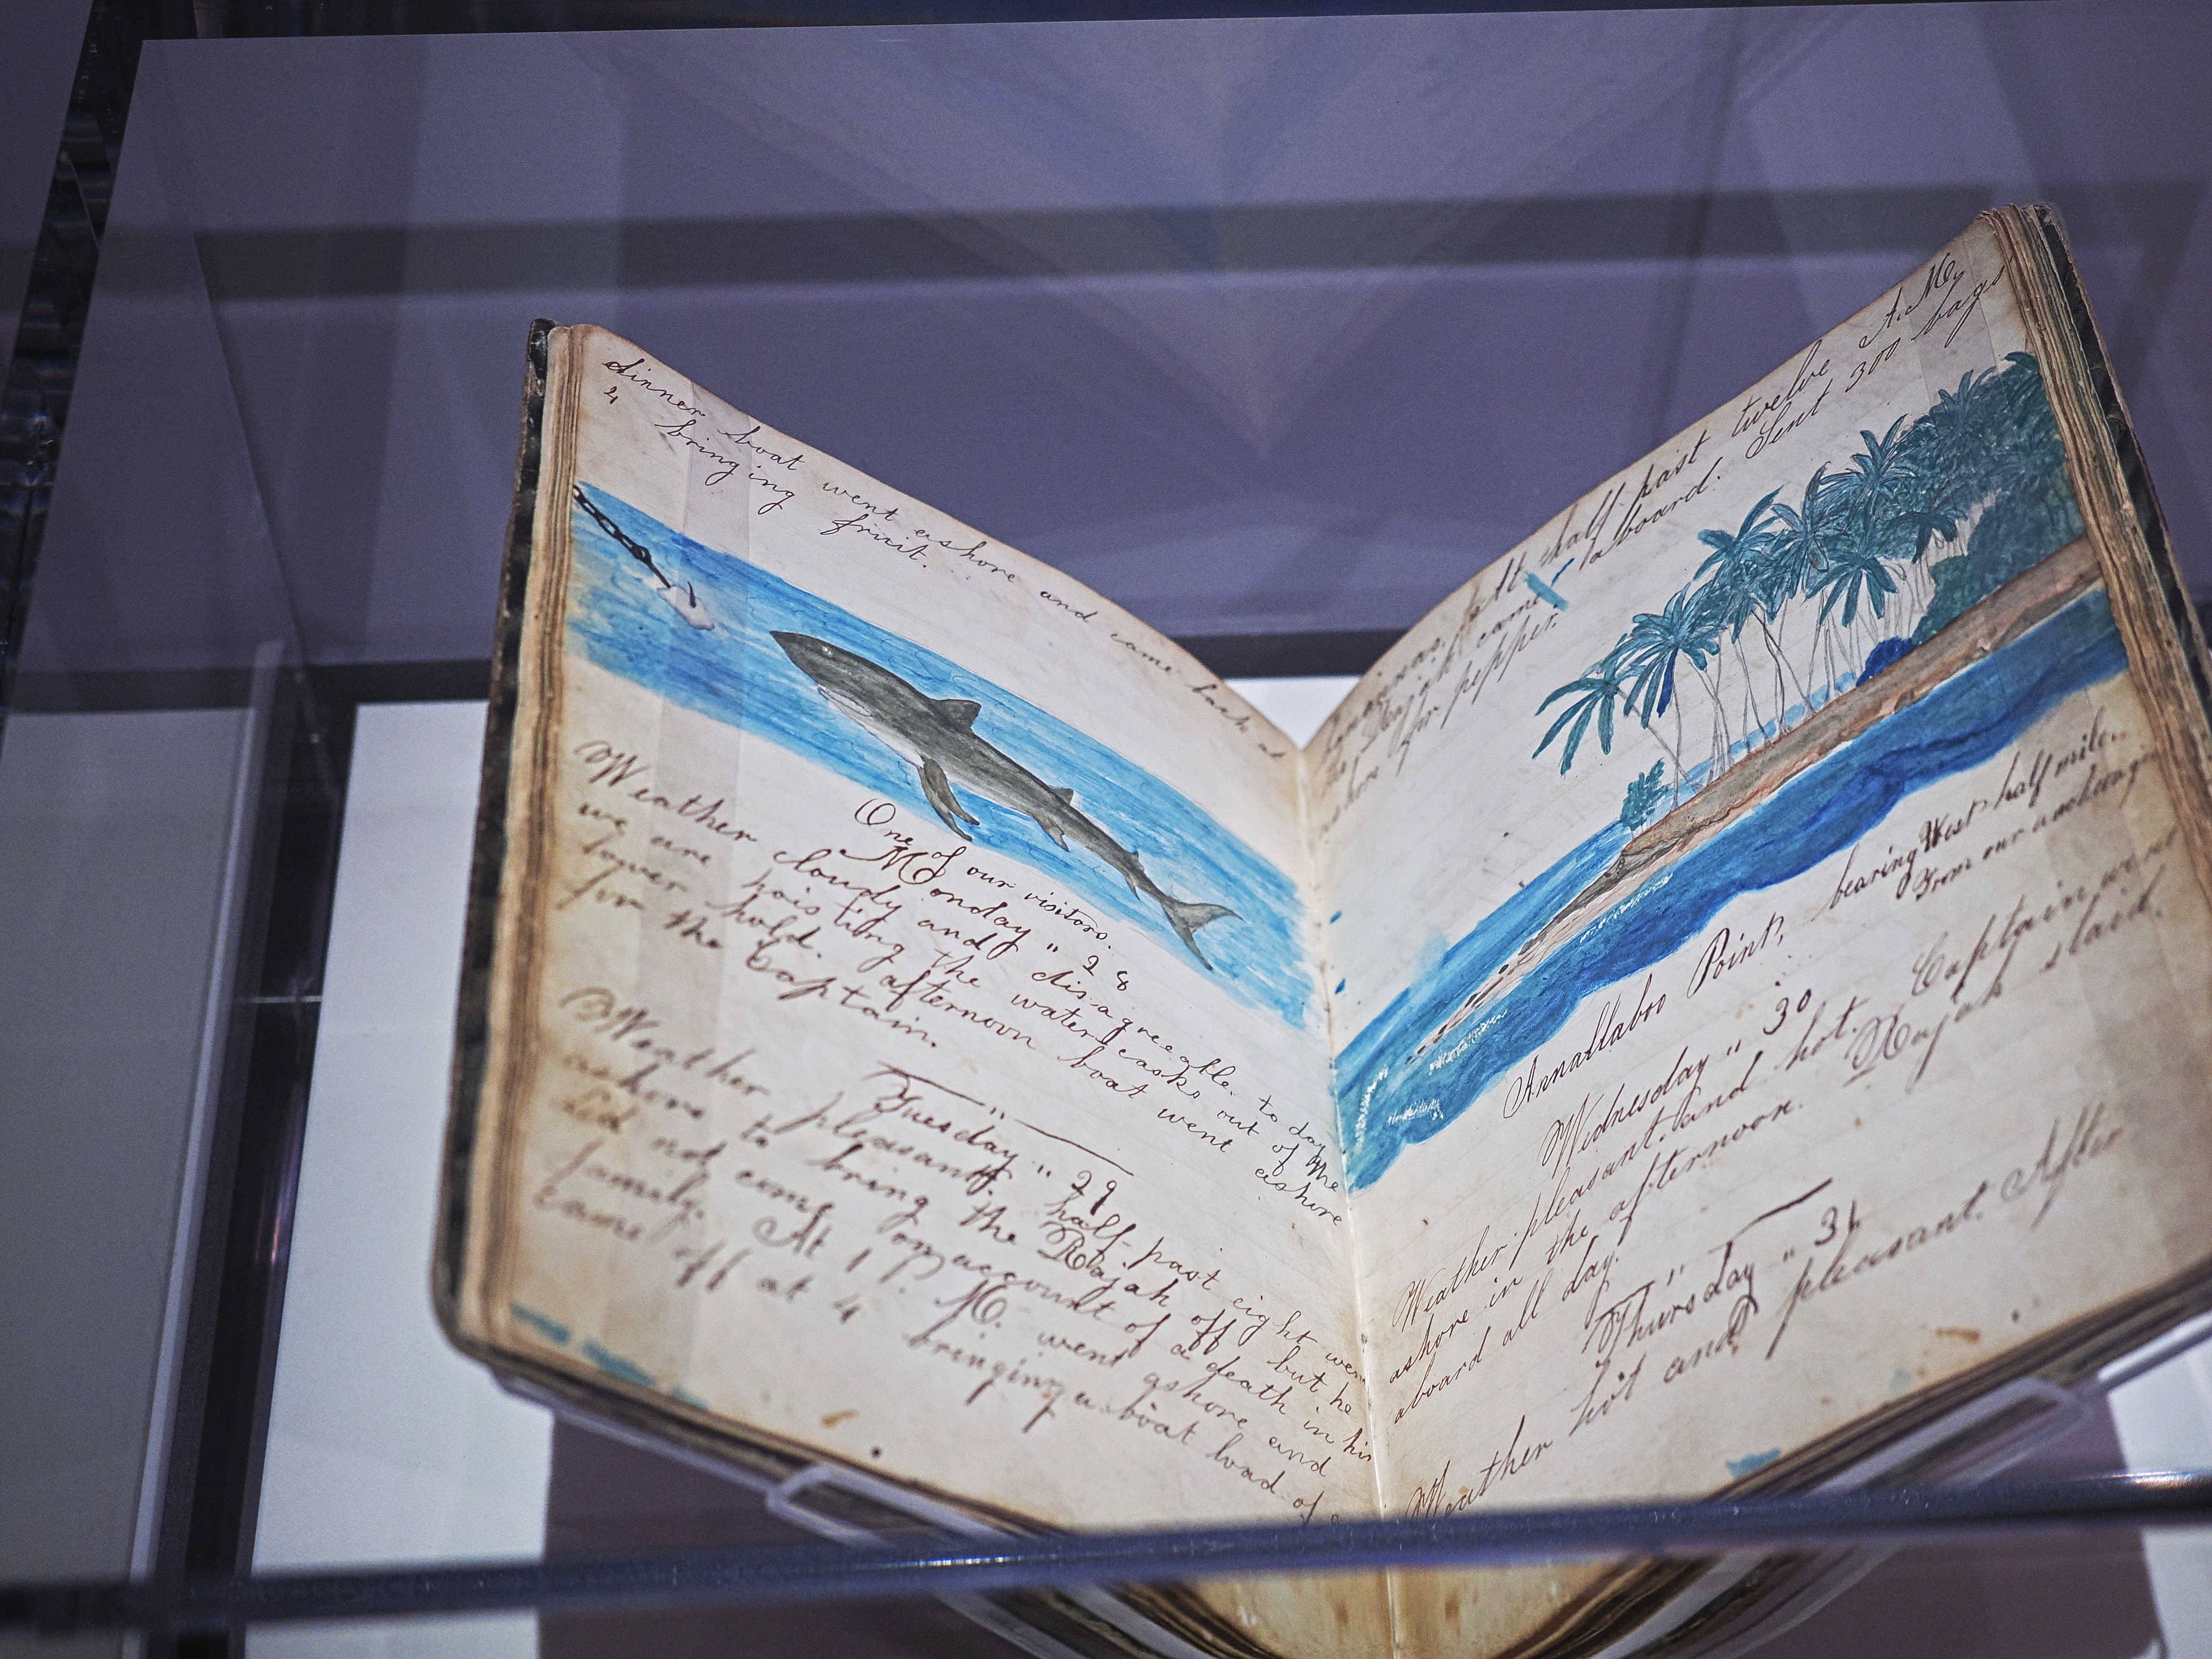 dinner boat went ashore and came back at
4 bringing fruit.
One of our visitors.
Monday " 28
Weather cloudy and disagreeable to day
we are hoisting the water casks out of the
lower hold. afternoon boat went ashore
for the Captain.
Tuesday " 29
Weather pleasant, half past eight went
ashore to bring the Rajah off but he
did not come on account of a death in his
family. At 1 P. M. went ashore and
came off at 4 bringing a boat load of
At half past twelve A. M.
the Rajah came aboard. Sent 300 bags
ashore for pepper.
Annallaboo Point, bearing West half mile.
From our anchorage
Wednesday " 30
Weather pleasant and hot. Captain went
ashore in the afternoon. Rajah staid
aboard all day.
Thursday " 31
Weather hot and pleasant. After